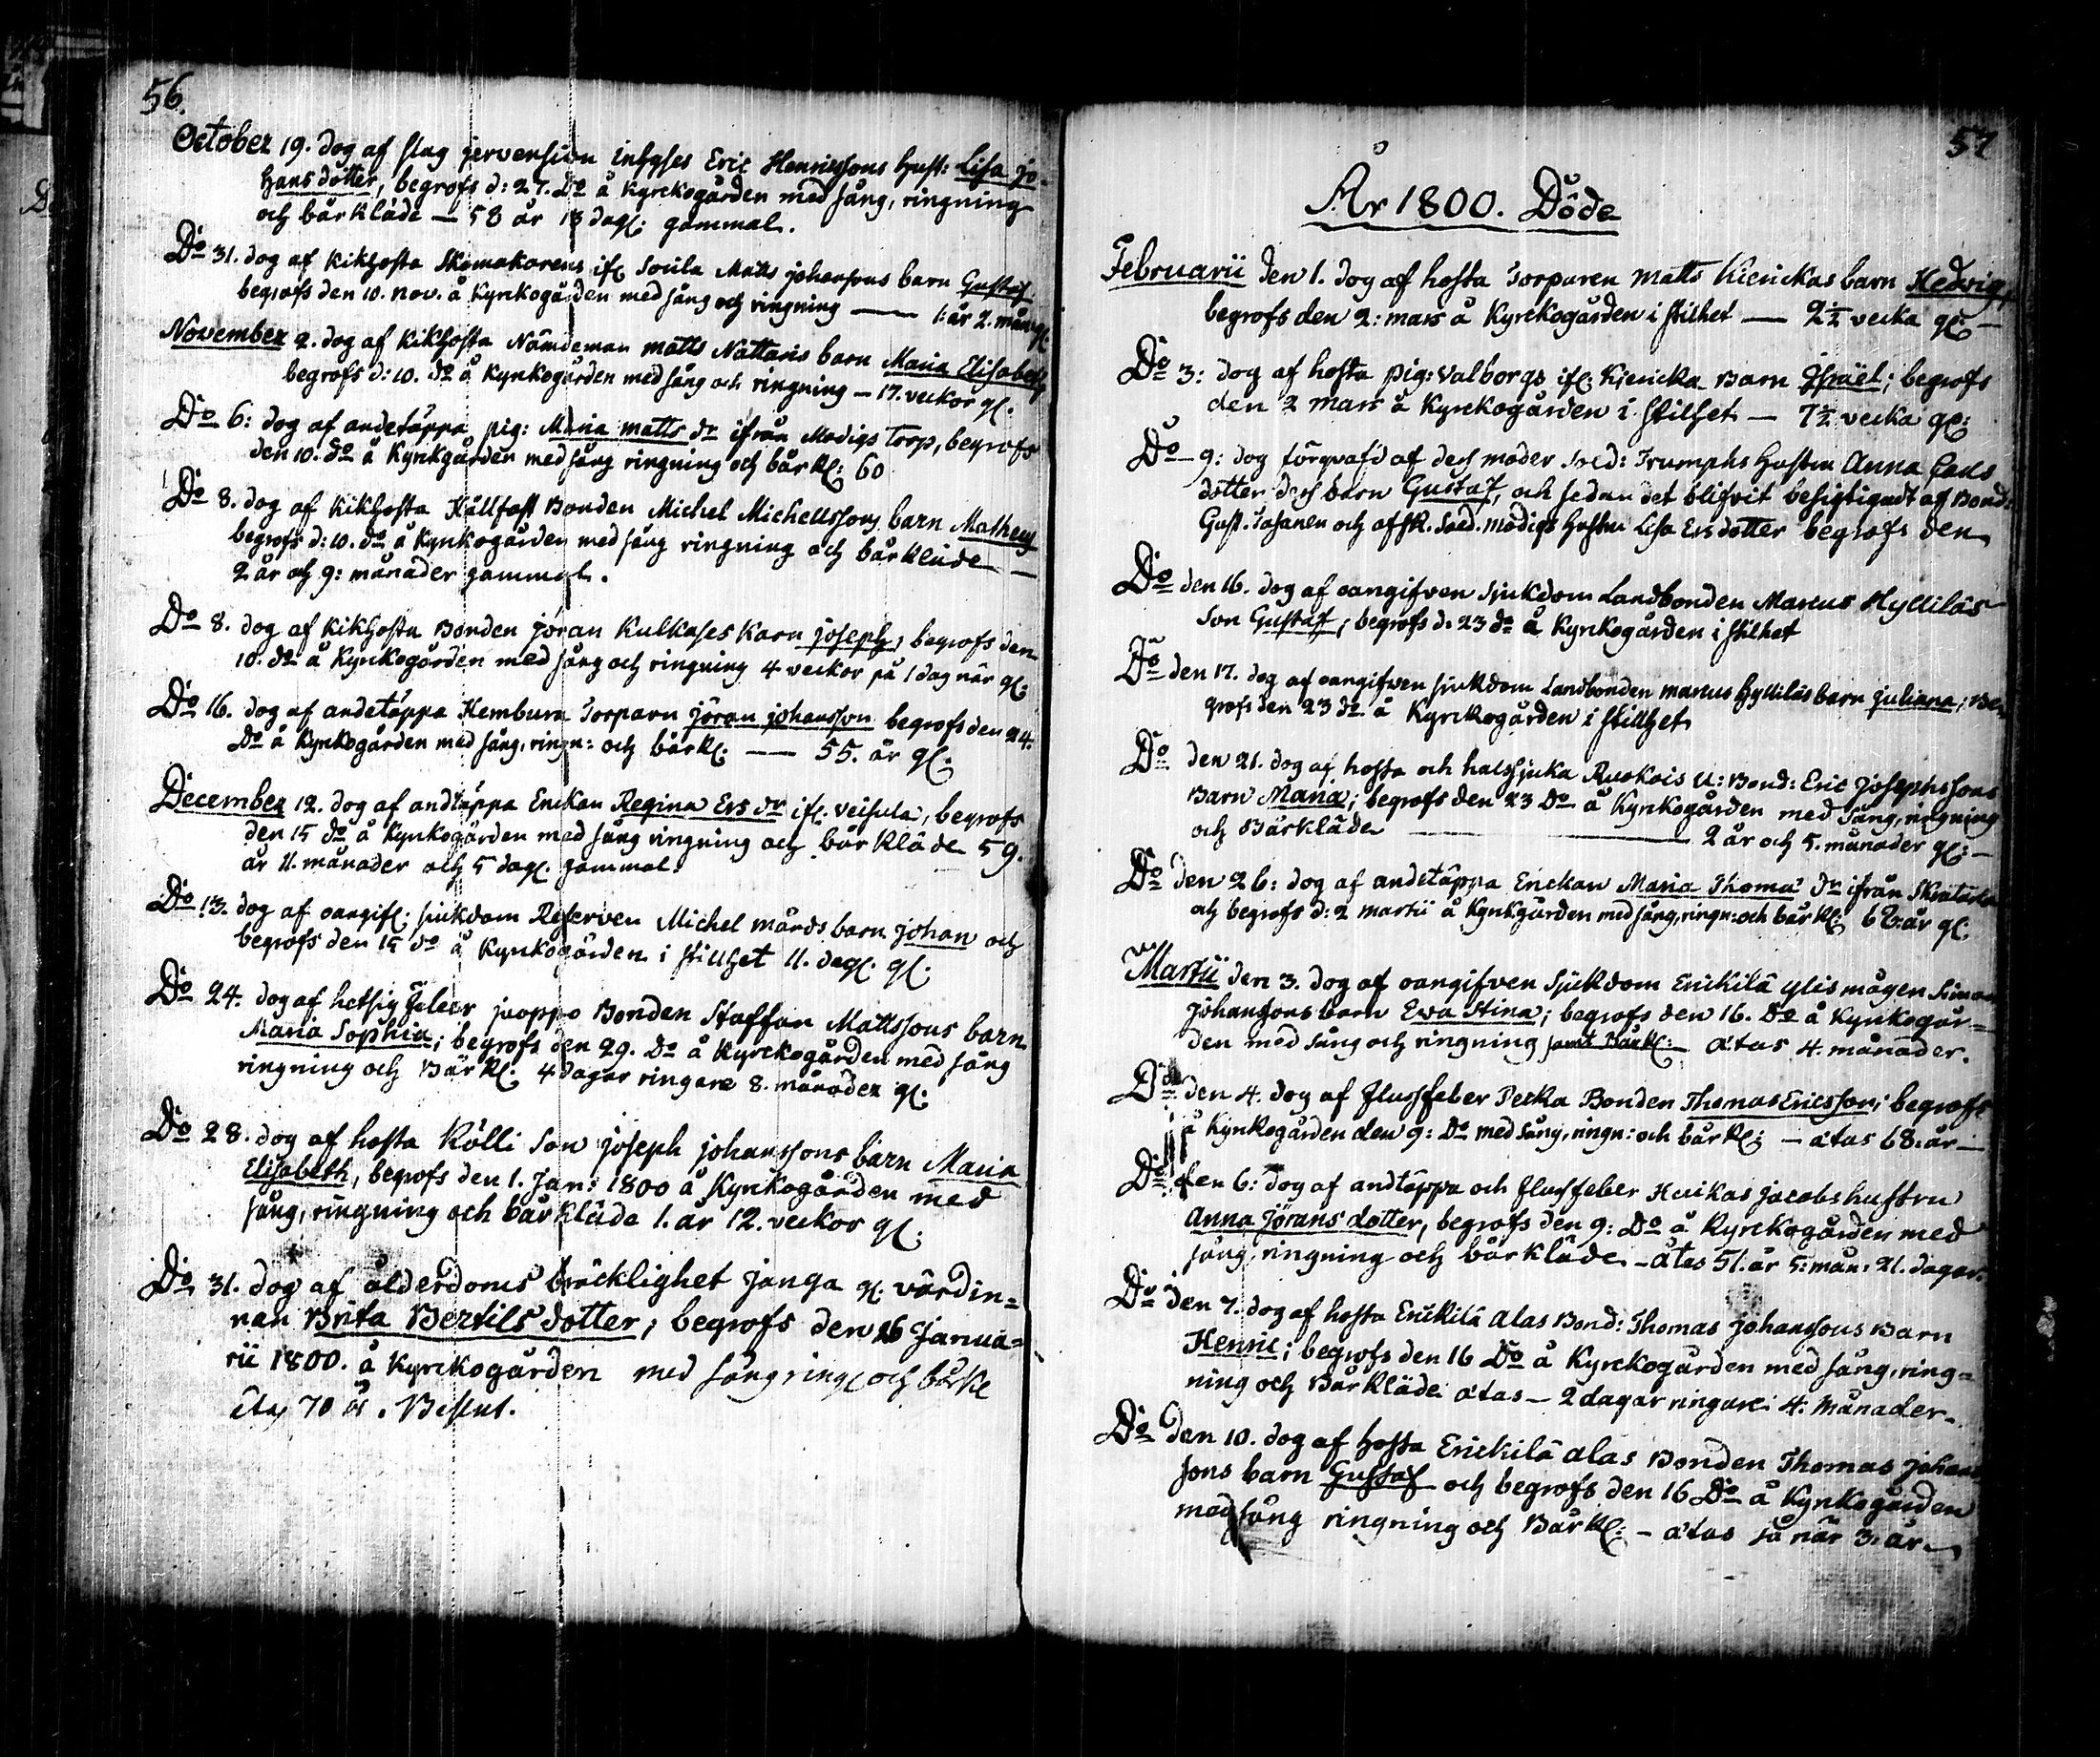 56.
October 19. dog af slag Eric Henricssons hust: Lisa Jo-
hans dotter, begrofs d: 27. Do å Kyrckogården med sång, ringning
och bårkläde — 58 år 13 dag: gammal.
Do 31. dog af kikhosta Skomakarens if: Matts Johanssons barn Gustaf
begrofs den 10. Nov. å Kyrckogården med sång och ringning — 1. år 2. mån: gl:
November 2. dog af kikhosta Nämdeman Matts Nattaris barn Maria Elisabeth
begrofs d: 10. do å Kyrckogården med sång och ringning — 17. veckor gl.
Do 6: dog af andetäppa pig: Maria Matts dr ifrån Modigs Torp, begrofs
den 10. do å Kyrckgården med sång ringning och bårkl: 60
Do 8. dog af kikhosta Källfast Bonden Michel Michelssons barn Matheus
begrofs d: 10. do å Kyrckogården med sång ringning och bårkläde —
2 år och 9: månader gammal.
Do 8. dog af kikhosta Bonden Jöran Kulkases barn Joseph, begrofs den
10. do å Kyrckogården med sång och ringning 4 veckor på 1 dag när gl:
Do 16. dog af andetäppa Kembura Torparn Jöran Johansson begrofs den 24.
Do å Kyrckogården med sång, ringn: och bårkl: — 55. år gl.
December 12. dog af andtäppa Enckan Regina Ers dr if: Veihula, begrofs
den 15 do å Kyrckogården med sång ringning och bårkläde 59.
år 11. månader och 5 dag: gammal.
Do 13. dog af oangif: sjukdom Reserven Michel Mårds barn Johan och
begrofs den 15 do å Kyrckogården i stillhet 11. dag: gl:
Do 24. dog af hetsig Feber Juoppo Bonden Staffan Mattssons barn
Maria Sophia; begrofs den 29. Do å Kyrckogården med sång
ringning och Bårkl: 4 dagar ringare 8. månader gl:
Do 28. dog af hosta Rölli Son Joseph Johanssons barn Maria
Elisabeth, begrofs den 1. Jan: 1800 å Kyrckogården med
sång, ringning och bårkläde 1. år 12. veckor gl:
Do 31. dog af ålderdoms bräcklighet Janga gl: värdin=
nan Brita Bertils dotter; begrofs den 16 Janua=
rii 1800. å Kyrckogården med sång ring: och bårkl
ætas 70 år. Beslut.
57
År 1800. Döde
Februarii den 1. dog af hosta Torparen Matts Kienickas barn Hedvig,
begrofs den 2: mars å Kyrckogården i stilhet — 2½ vecka gl: —
Do 3: dog af hosta pig: Valborgs if: Kjenicka Barn Israel; begrofs
den 2 mars å Kyrckogården i stilhet — 7½ vecka gl:
Do 9: dog förqvafd af dess moder Sold: Trumphs Hustru Anna Carls
dotter dess barn Gustaf, och sedan det blifvit besigtigadt af Bond:
Gust: Tasanen och afsk. Sold. Modigs Hustru Lisa Ersdotter begrofs den
Do den 16. dog af oangifven Sjukdom Landbonden Marcus Hyllilás
Son Gustaf; begrofs d. 23 do å Kyrckogården i stilhet
Do den 17. dog af oangifven sjukdom Landbonden Marcus Hyllilás barn Juliana; Be
grofs den 23 do å Kyrckogården i stillhet
Do den 21. dog af hosta och halssjuka Ruokois U: Bond: Eric Josephssons
Barn Maria; begrofs den 23 Do å Kyrckogården med Sång, ringning
och Bårkläde — 2 år och 5. månader gl: —
Do den 26: dog af andetäppa Enckan Maria Thomæ dr ifrån
och begrofs d: 2 Martii å Kyrckgården med sång, ringn: och bårkl: år gl:
Martii den 3. dog af oangifven Sjukdom Erickilä ylis mågen Simon
Johanssons barn Ewa Stina; begrofs den 16. Do å Kyrckogår=
den med sång och ringning samt Bårkl: ætas 4. månader.
Do den 4. dog af flussfeber Pecka Bonden Thomas Ericsson; begrofs
å Kyrckogården den 9: Do med Sång, ringn: och bårkl: — ætas 68. år —
Do den 6: dog af andtäppa och flussfeber Huikas Jacobs hustru
Anna Jörans dotter, begrofs den 9: Do å Kyrckogården med
sång, ringning och bårkläde — ætas 51. år 5: mån: 21. dagar.
Do den 7. dog af hosta Erickilä alas Bond: Thomas Johanssons Barn
Henric; begrofs den 16 Do å Kyrckogården med sång, ring=
ning och Bårkläde ætas — 2 dagar ringare 4. Månader —
Do den 10. dog af hosta Erickilä alas Bonden Thomas Johans
sons barn Gustaf och begrofs den 16 Do å Kyrckogården
med sång ringning och Bårkl: — ætas så när 3. år